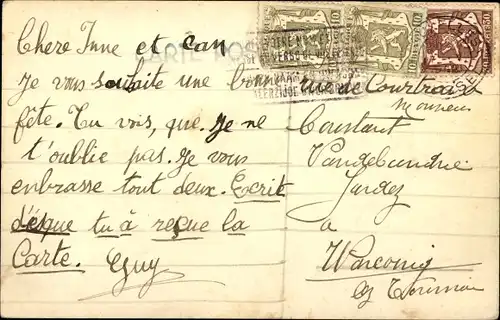 CARTE POS
Chere Inne et can
Je vous souhaite une bonne
fête. Tu vois, que je ne
t'oublie pas. Je vous
enbrasse tout deux. Ecrit
désque tu à reçue la
Carte. Guy
rue de Courtrai
Monsieur
Constant
Vandebundrie
Jardez
a
Warcoing
Tournai